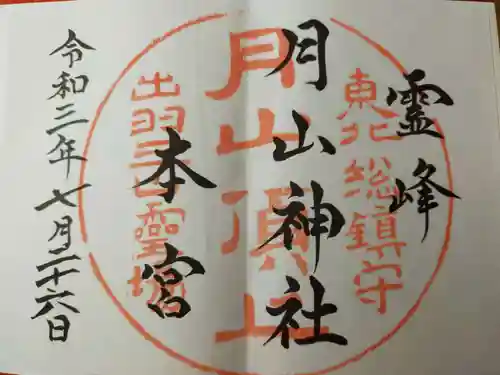 霊峰
月山神社
本宮
令和三年七月二十六日
東北総鎮守
月山頂上
出羽三山霊場